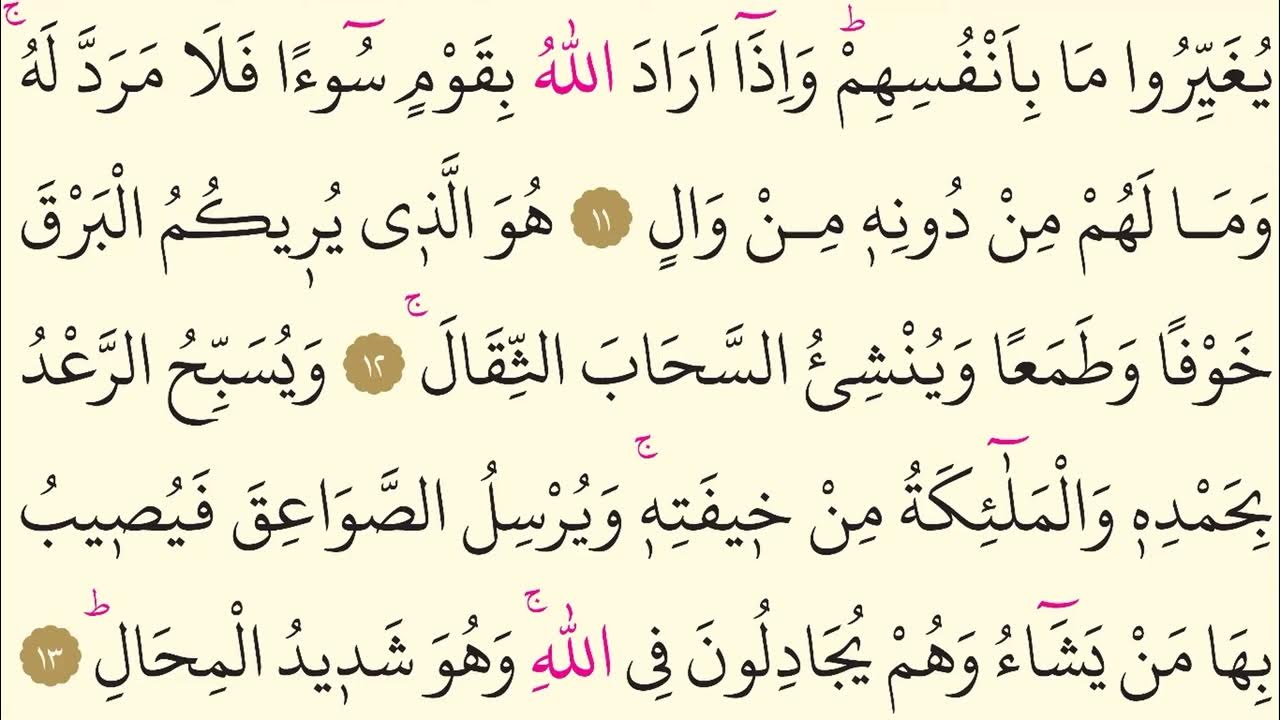 يُغَيِّرُوا مَا بِاَنْفُسِهِمْۜ وَاِذَٓا اَرَادَ اللّٰهُ بِقَوْمٍ سُٓوءًا فَلَا مَرَدَّ لَهُۚ
وَمَا لَهُمْ مِنْ دُونِهٖ مِنْ وَالٍ ﴿١١﴾ هُوَ الَّذٖى يُرٖيكُمُ الْبَرْقَ
خَوْفًا وَطَمَعًا وَيُنْشِئُ السَّحَابَ الثِّقَالَۚ ﴿١٢﴾ وَيُسَبِّحُ الرَّعْدُ
بِحَمْدِهٖ وَالْمَلٰٓئِكَةُ مِنْ خٖيفَتِهٖۚ وَيُرْسِلُ الصَّوَاعِقَ فَيُصٖيبُ
بِهَا مَنْ يَشَٓاءُ وَهُمْ يُجَادِلُونَ فِى اللّٰهِۚ وَهُوَ شَدٖيدُ الْمِحَالِؕ ﴿١٣﴾